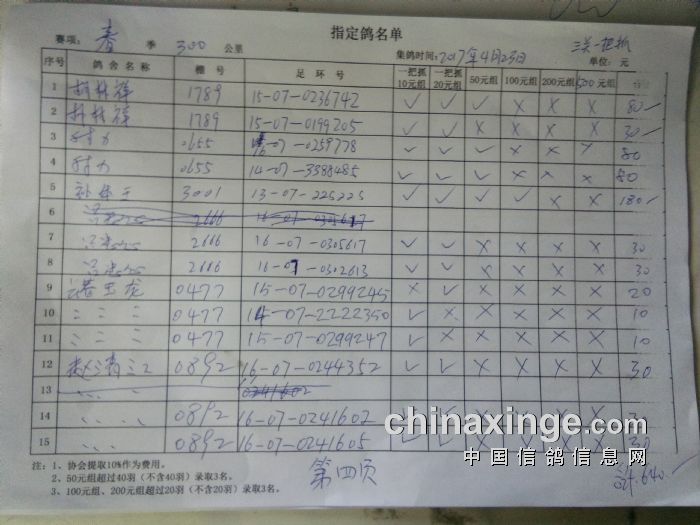 指定鸽名单
赛项: 春 季 300 公里 集鸽时间: 2017年4月23日 三关一把抓
单位: 元
序号 鸽舍名称 棚号 足环号 一把抓10元组 一把抓20元组 50元组 100元组 200元组 500元组 合计
1 1789 15-07-0236742 ✓ ✓ ✓ × × × 80
2 1789 15-07-0199205 ✓ ✓ × × × × 30
3 0655 16-07-0259778 ✓ ✓ ✓ × × × 80
4 0655 14-07-3388485 ✓ ✓ ✓ × × × 80
5 3001 13-07-225225 ✓ ✓ ✓ ✓ × × 180
6 2666 16-07-0305617
7 2666 16-07-0305617 ✓ ✓ × × × × 30
8 2666 16-07-0302613 ✓ ✓ × × × × 30
9 潘玉龙 0477 15-07-0299245 × ✓ × × × × 20
10 〃 〃 〃 0477 14-07-2222350 ✓ × × × × × 10
11 〃 〃 〃 0477 15-07-0299247 ✓ × × × × × 10
12 赵清江 0892 16-07-0244352 ✓ ✓ × × × × 30
13 0241602
14 0892 16-07-0241602 30
15 0892 16-07-0241605 ✓ ✓ × × × × 30
chinaxinge.com
中国信鸽信息网
注: 1、协会提取10%作为费用。
2、50元组超过40羽(不含40羽)录取3名。
3、100元组、200元组超过20羽(不含20羽)录取3名。
第四页
计.640